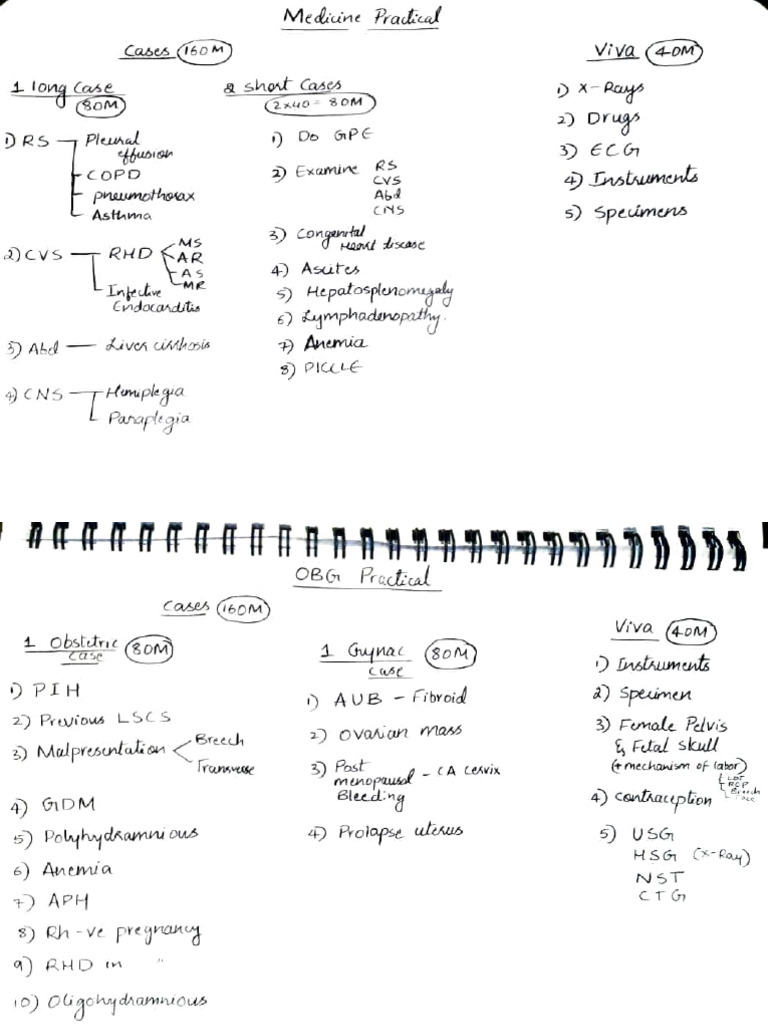 Medicine Practical
Cases 160M
1 long Case
80M
1) RS
Pleural
effusion
COPD
pneumothorax
Asthma
2) CVS
RHD
MS
AR
AS
MR
Infective
Endocarditis
3) Abd — Liver cirrhosis
4) CNS
Hemiplegia
Paraplegia
2 Short Cases
2x40 = 80M
1) Do GPE
2) Examine RS
CVS
Abd
CNS
3) Congenital
Heart disease
4) Ascites
5) Hepatosplenomegaly
6) Lymphadenopathy.
7) Anemia
8) PICCLE
Viva 40M
1) X-Rays
2) Drugs
3) ECG
4) Instruments
5) Specimens
OBG Practical
Cases 160M
1 Obstetric
Case
80M
1) PIH
2) Previous LSCS
3) Malpresentation
Breech
Transverse
4) GDM
5) Polyhydramnious
6) Anemia
7) APH
8) Rh-ve pregnancy
9) RHD in "
10) Oligohydramnious
1 Gynac
Case
80M
1) AUB - Fibroid
2) Ovarian mass
3) Post
menopausal - CA cervix
Bleeding
4) Prolapse uterus
Viva 40M
1) Instruments
2) Specimen
3) Female Pelvis
& Fetal skull
(+ mechanism of labor)
Breech
4) Contraception
5) USG
HSG (X-Ray)
NST
CTG